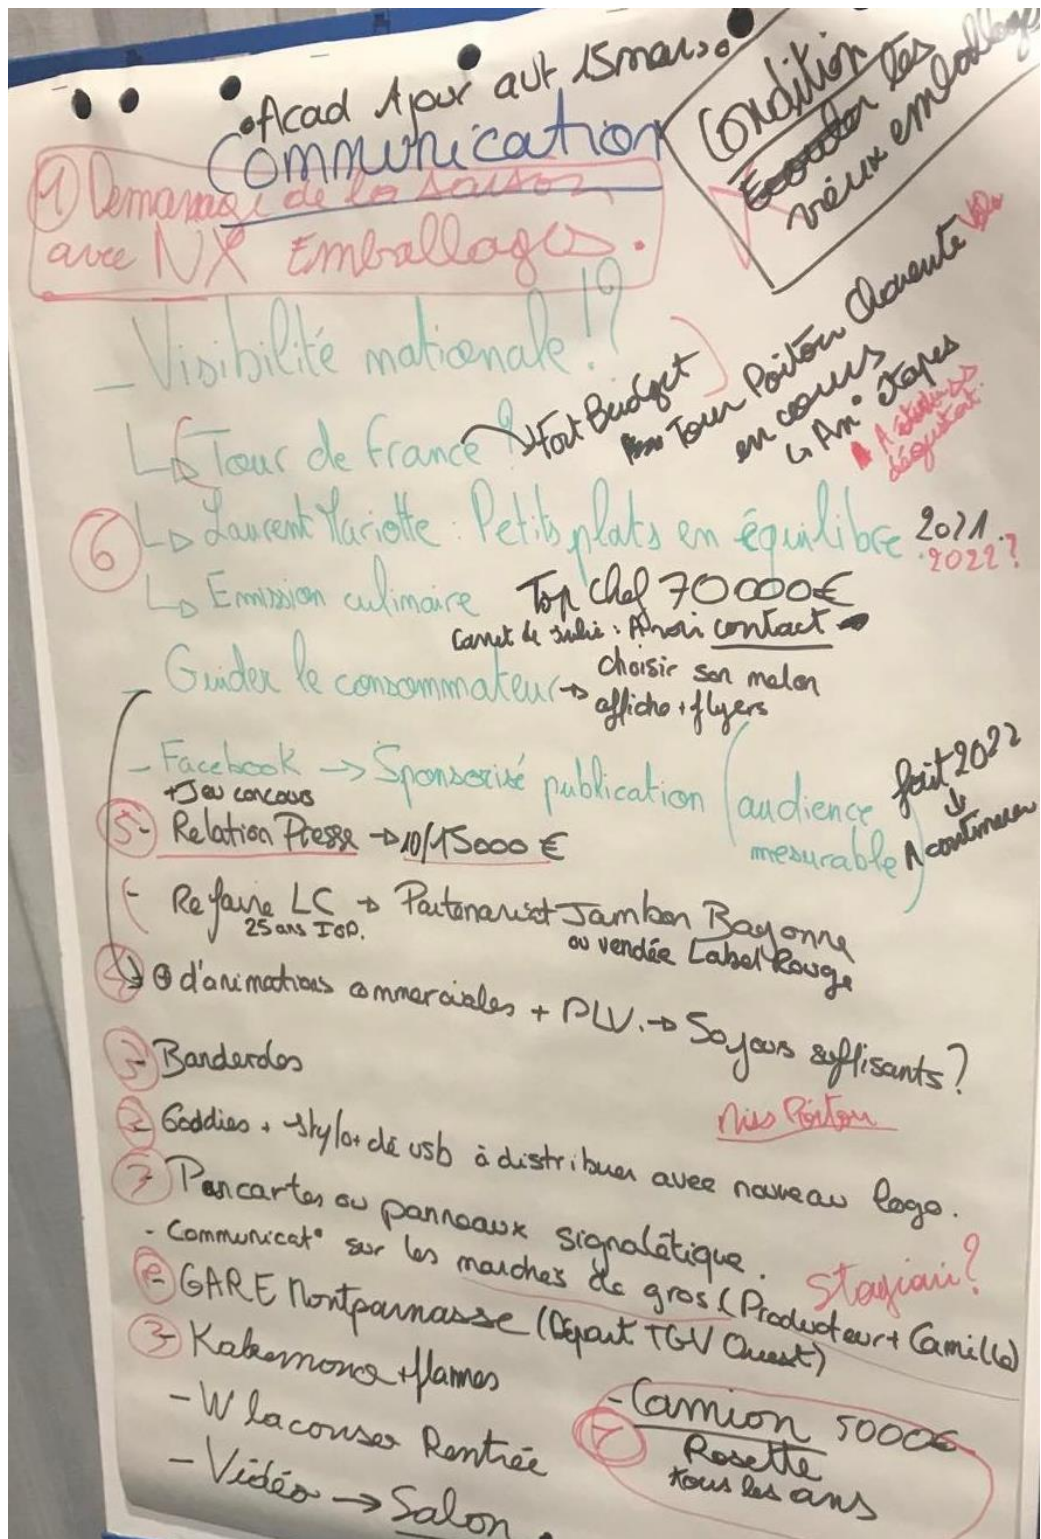 Acad 1 jour aut 15 mars
Communication
Condition
les
vieux emballages
1) Demarrage de la saison
avec NX Emballages.
- Visibilité nationale !?
↳ Tour de France ?
→ Fort Budget
Tour Poitou Charente Vélo
en cours
↳ An° étapes
dégustat.
6
↳ Laurent Mariotte : Petits plats en équilibre 2021.
2022?
↳ Emission culinaire Top Chef 70000€
Carnet de Julie : A voir contact
- Guider le consommateur → choisir son melon
affiche + flyers
- Facebook → Sponsorisé publication (audience
mesurable)
+ Jeu concours
fait 2022
↓
A continuer
5- Relation Presse → 10/15000 €
- Refaire LC → Partenariat Jambon Bayonne
25 ans IGP.
ou vendée Label Rouge
4 ⊕ d'animations commerciales + PLV. → 50 jours suffisants ?
3- Banderoles
Miss Poitou
2- Goddies + stylo + clé usb à distribuer avec nouveau logo.
7- Pancartes ou panneaux signalétique.
- Communicat° sur les marchés de gros (Producteur + Camille)
Stagiaire ?
- GARE Montparnasse (Départ TGV Ouest)
3- Kakemono + flames
- W laconser Rentrée
- Vidéo → Salon.
- Camion 5000€
7
Rosette
tous les ans